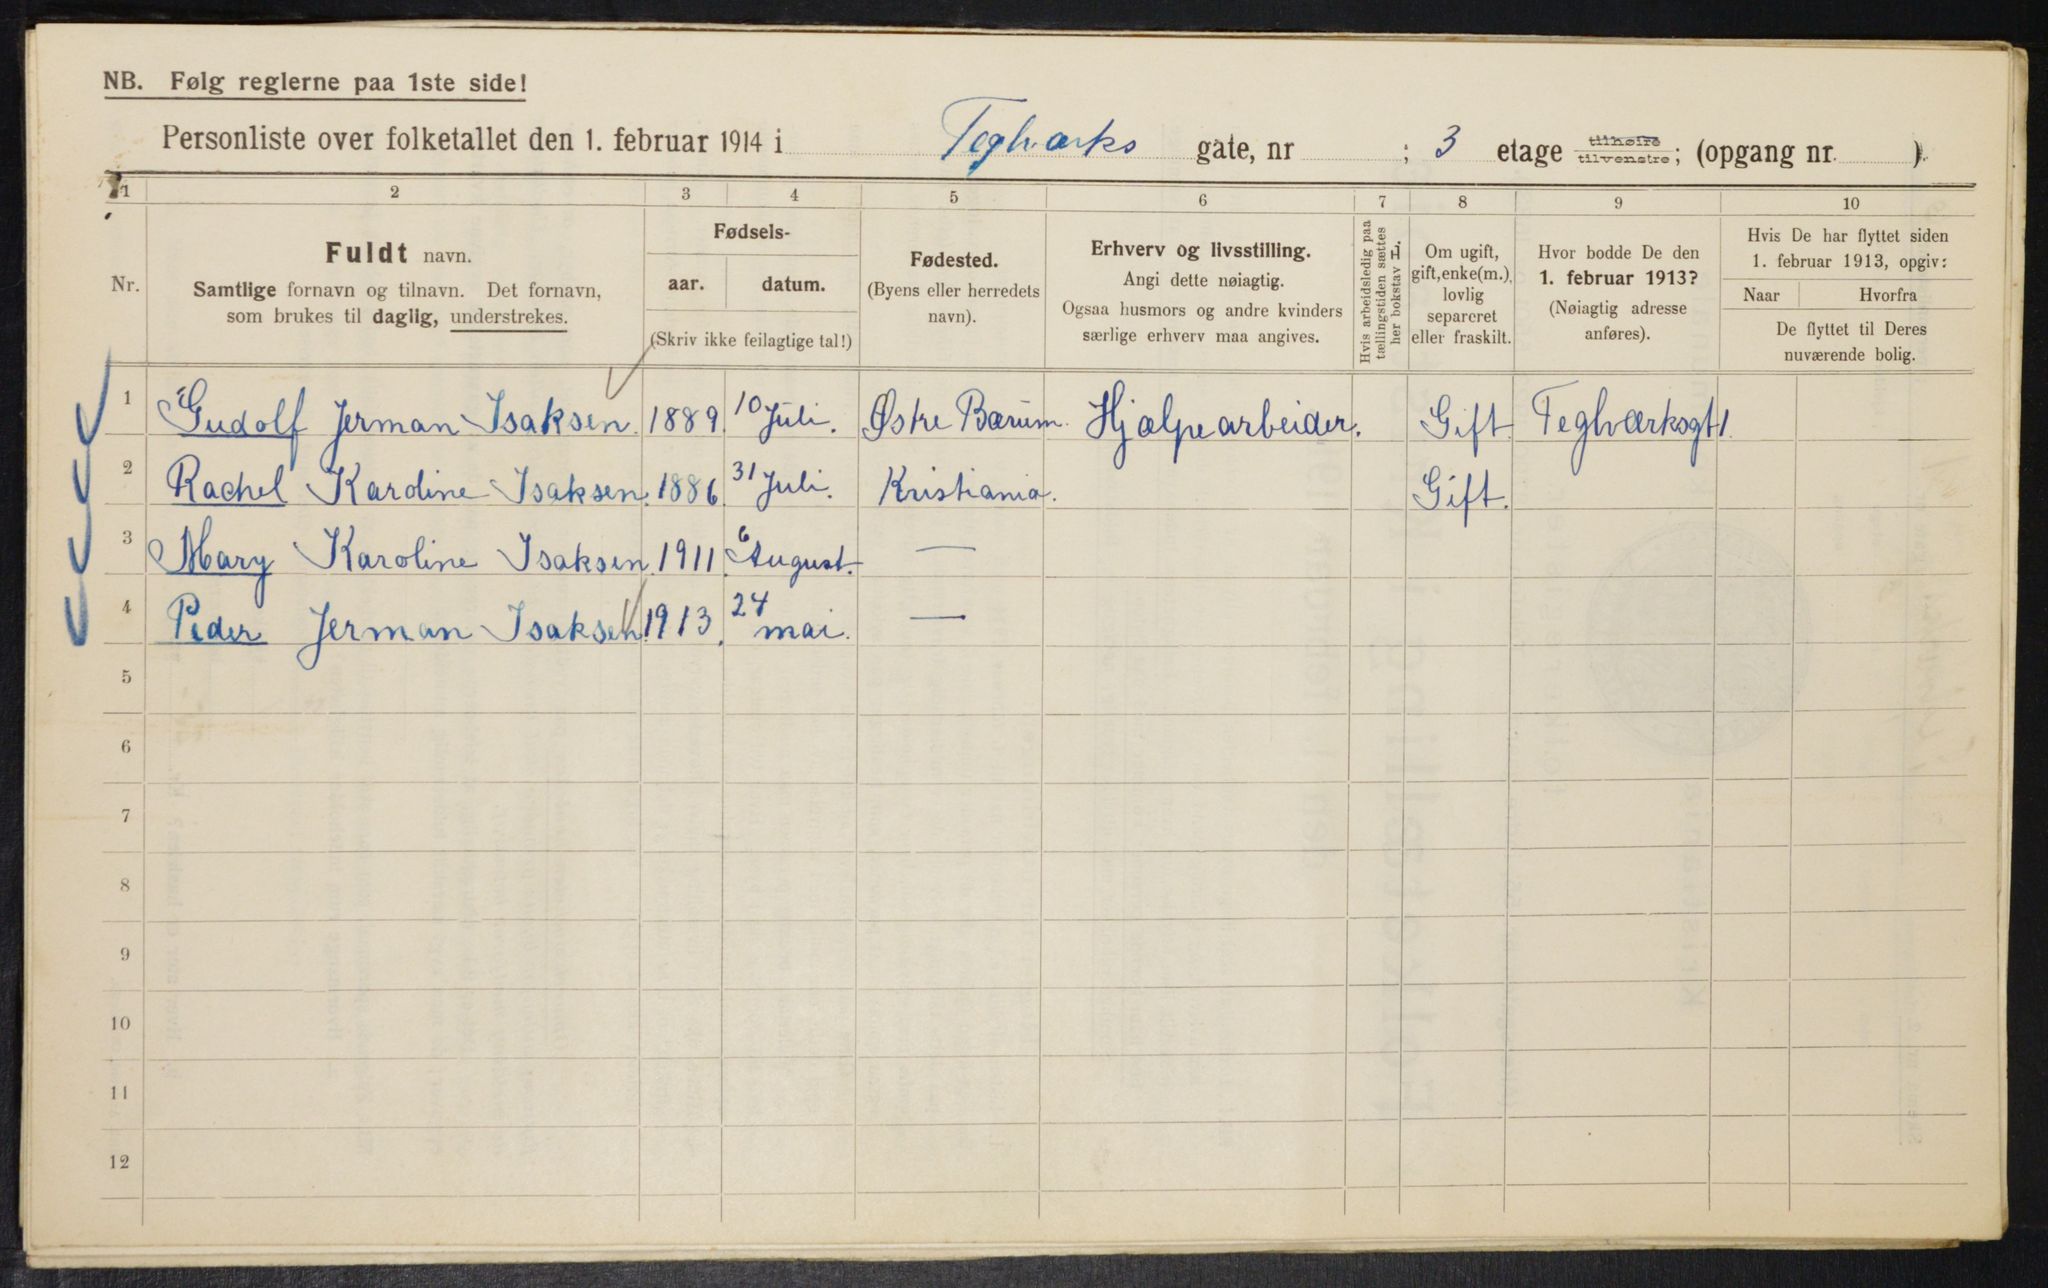 NB. Følg reglerne paa 1ste side!
Personliste over folketallet den 1. februar 1914 i Teglværks gate, nr ; 3 etage tilhøire tilvenstre; (opgang nr. )
1 2 3 4 5 6 7 8 9 10
Nr.
Fuldt navn.
Samtlige fornavn og tilnavn. Det fornavn,
som brukes til daglig, understrekes.
Fødsels-
aar. datum.
(Skriv ikke feilagtige tal!)
Fødested.
(Byens eller herredets
navn).
Erhverv og livsstilling.
Angi dette nøiagtig.
Ogsaa husmors og andre kvinders
særlige erhverv maa angives.
Hvis arbeidsledig paa
tællingstiden sættes
her bokstav L.
Om ugift,
gift, enke(m.),
lovlig
separeret
eller fraskilt.
Hvor bodde De den
1. februar 1913?
(Nøiagtig adresse
anføres).
Hvis De har flyttet siden
1. februar 1913, opgiv:
Naar Hvorfra
De flyttet til Deres
nuværende bolig.
1 Gudolf Jerman Isaksen. 1889. 10 Juli. Østre Bærum. Hjælpearbeider. Gift. Teglværksgt 1.
2 Rachel Karoline Isaksen. 1886. 31 Juli. Kristiania. Gift.
3 Mary Karoline Isaksen. 1911. 6 August. —
4 Peder Jerman Isaksen. 1913. 24 mai. —
5
6
7
8
9
10
11
12